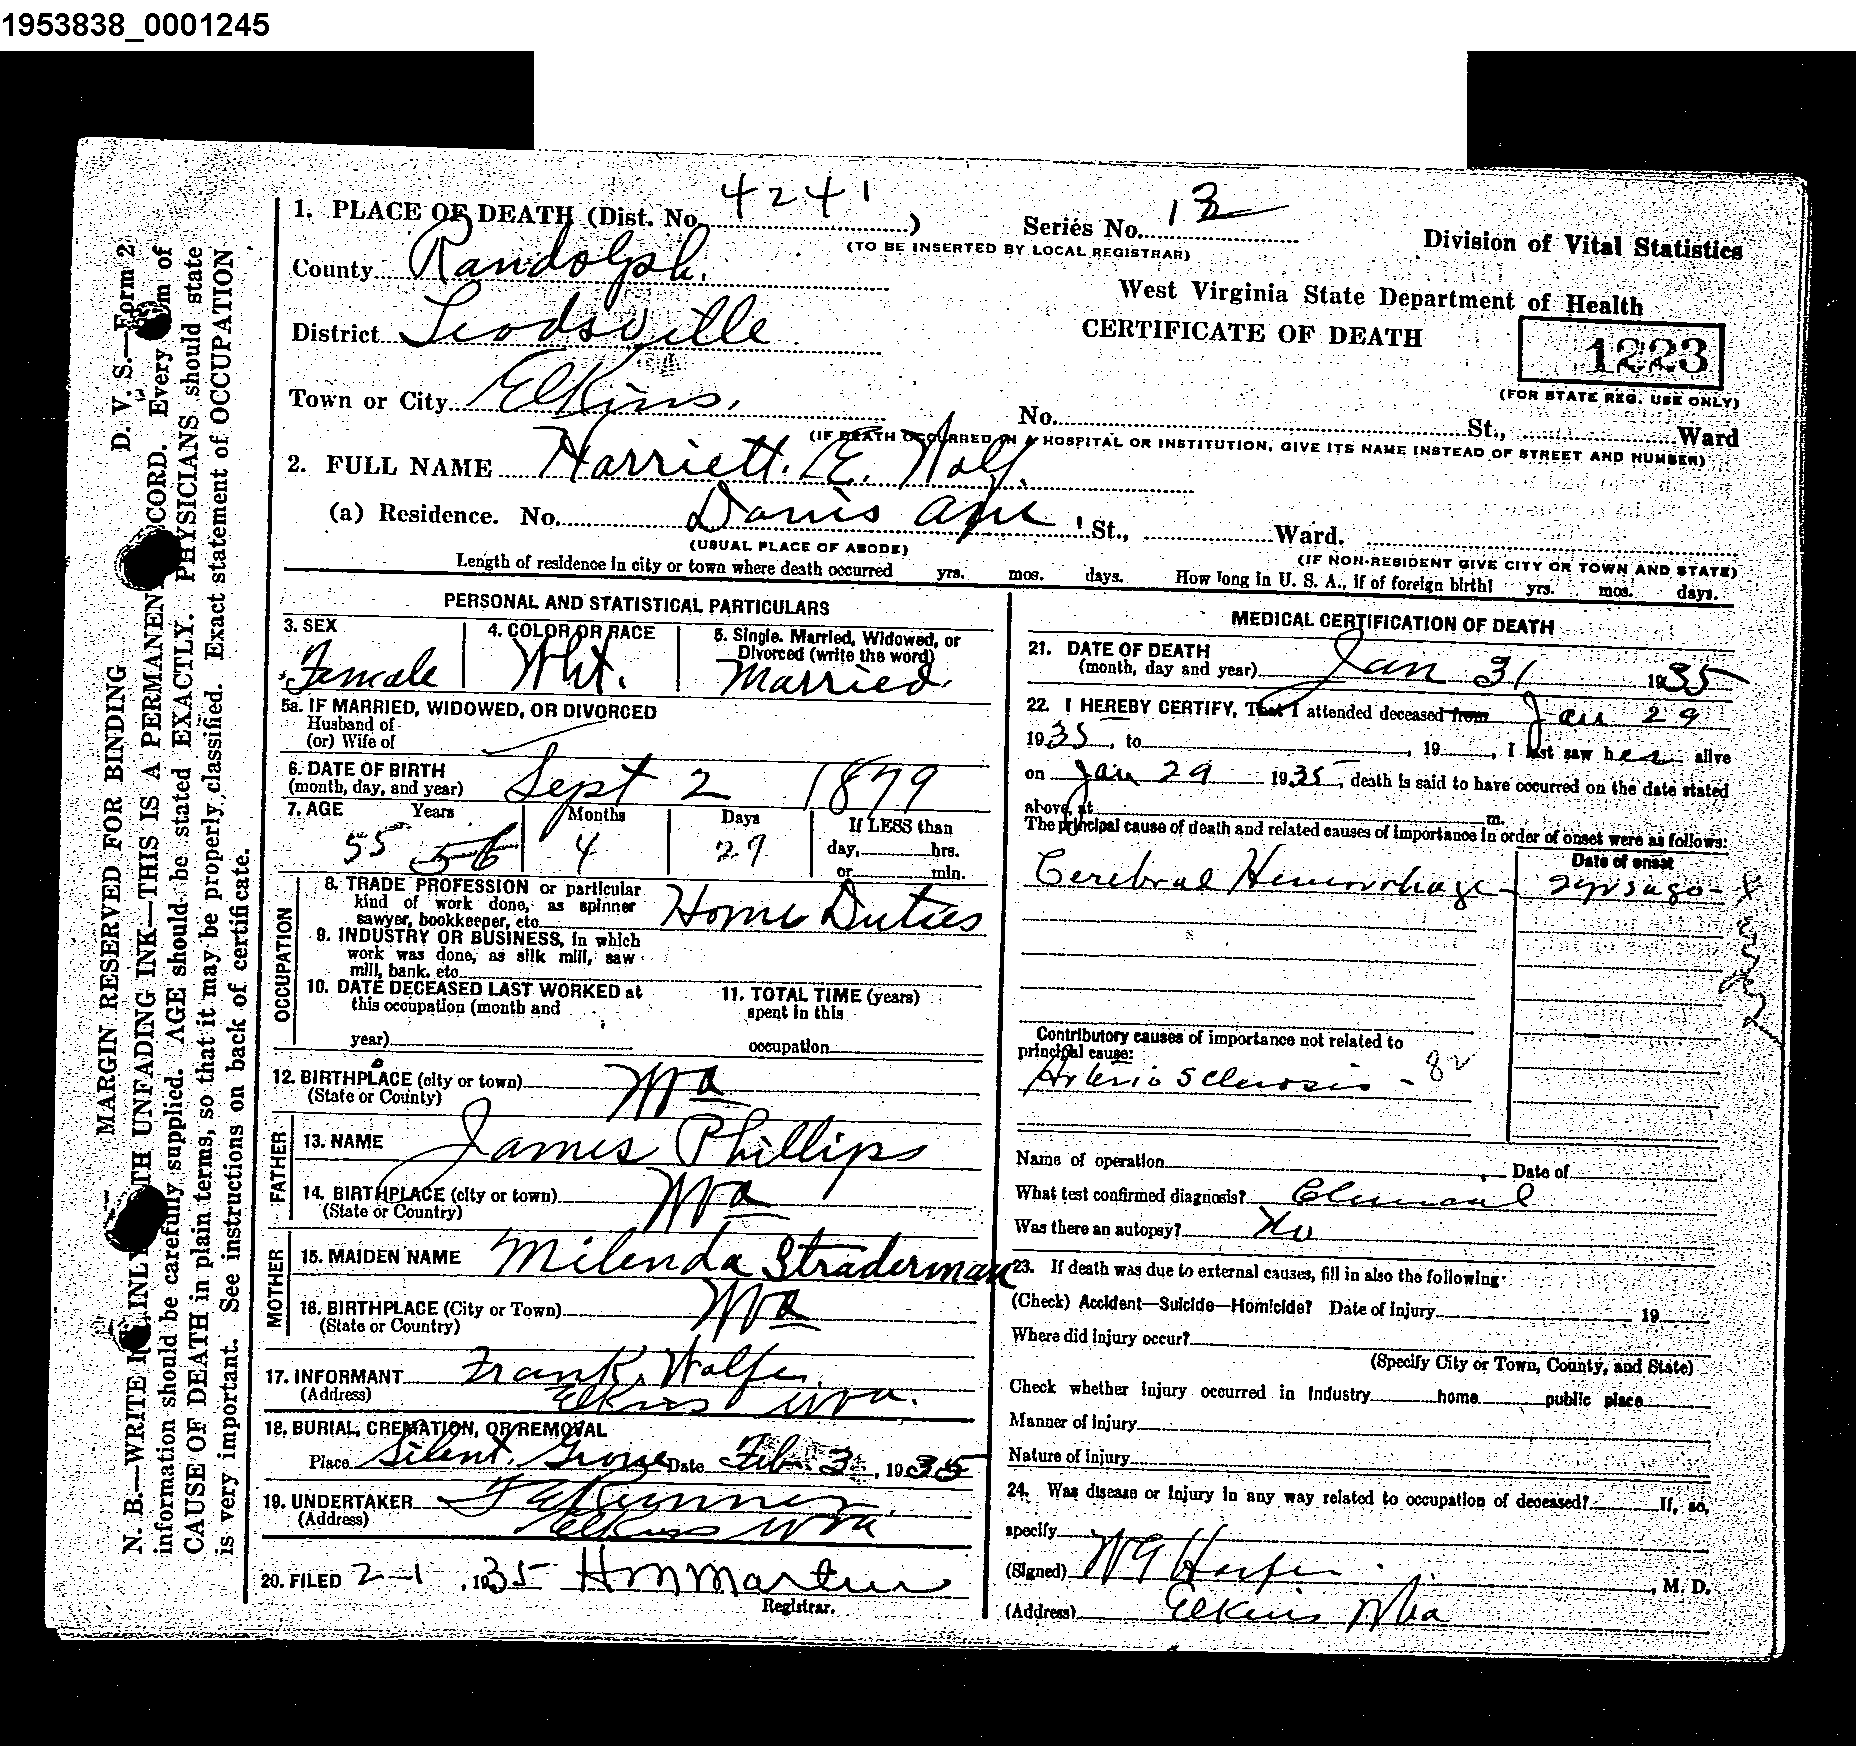 1953838_0001245
1. PLACE OF DEATH (Dist. No. 4241 )
Series No. 13
(TO BE INSERTED BY LOCAL REGISTRAR)
Division of Vital Statistics
County Randolph.
West Virginia State Department of Health
CERTIFICATE OF DEATH
1223
(FOR STATE REG. USE ONLY)
District Leadsville
Town or City Elkins.
No. St., Ward
(IF DEATH OCCURRED IN A HOSPITAL OR INSTITUTION, GIVE ITS NAME INSTEAD OF STREET AND NUMBER)
2. FULL NAME Harriett. E. Wolf.
(a) Residence. No. Davis Ave St., Ward.
(USUAL PLACE OF ABODE)
(IF NON-RESIDENT GIVE CITY OR TOWN AND STATE)
Length of residence in city or town where death occurred yrs. mos. days. How long in U. S. A., if of foreign birth? yrs. mos. days.
PERSONAL AND STATISTICAL PARTICULARS
3. SEX
Female
4. COLOR OR RACE
Wht.
5. Single, Married, Widowed, or
Divorced (write the word)
Married
5a. IF MARRIED, WIDOWED, OR DIVORCED
Husband of
(or) Wife of
6. DATE OF BIRTH
(month, day, and year) Sept 2 1879
7. AGE Years Months Days If LESS than
55 56 4 27 day, hrs.
or min.
OCCUPATION
8. TRADE PROFESSION or particular
kind of work done, as spinner
sawyer, bookkeeper, etc. Home Duties
9. INDUSTRY OR BUSINESS, in which
work was done, as silk mill, saw
mill, bank, etc.
10. DATE DECEASED LAST WORKED at
this occupation (month and
year)
11. TOTAL TIME (years)
spent in this
occupation
12. BIRTHPLACE (city or town) WVa
(State or County)
FATHER
13. NAME James Phillips
14. BIRTHPLACE (city or town) WVa
(State or Country)
MOTHER
15. MAIDEN NAME Milenda Straderman
16. BIRTHPLACE (City or Town) WVa
(State or Country)
17. INFORMANT Frank Wolfe
(Address) Elkins WVa.
18. BURIAL, CREMATION, OR REMOVAL
Place Silent. Grove Date Feb. 3, 1935
19. UNDERTAKER
(Address) Elkins WVa
20. FILED 2-1, 1935 H M Martin
Registrar.
MEDICAL CERTIFICATION OF DEATH
21. DATE OF DEATH
(month, day and year) Jan 31 1935
22. I HEREBY CERTIFY, That I attended deceased from Jan 29
1935, to , 19 , I last saw her alive
on Jan 29 1935, death is said to have occurred on the date stated
above, at m.
The principal cause of death and related causes of importance in order of onset were as follows:
Date of onset
Cerebral Hemorrhage 2 yrs ago
Contributory causes of importance not related to
principal cause:
Arterio Sclerosis - 82
Name of operation Date of
What test confirmed diagnosis? Clinical
Was there an autopsy? No
23. If death was due to external causes, fill in also the following:
(Check) Accident—Suicide—Homicide? Date of Injury 19
Where did injury occur?
(Specify City or Town, County, and State)
Check whether injury occurred in Industry home public place
Manner of Injury
Nature of injury
24. Was disease or Injury in any way related to occupation of deceased? If, so,
specify
(Signed) W G Harper, M. D.
(Address) Elkins WVa
D. V. S.—Form 2
MARGIN RESERVED FOR BINDING
N. B.—WRITE INLY TH UNFADING INK—THIS IS A PERMANEN CORD. Every m of
information should be carefully supplied. AGE should be stated EXACTLY. PHYSICIANS should state
CAUSE OF DEATH in plain terms, so that it may be properly classified. Exact statement of OCCUPATION
is very important. See instructions on back of certificate.